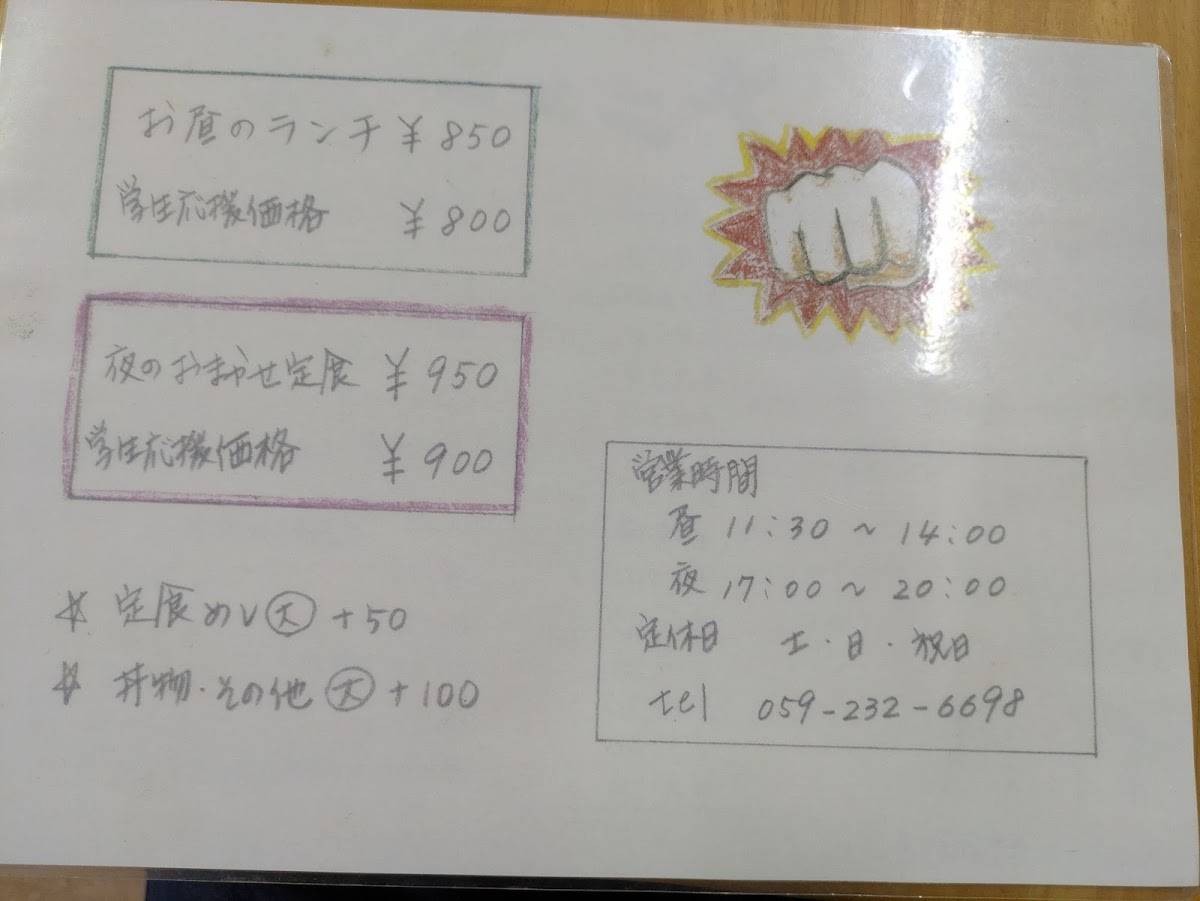 お昼のランチ ¥850
学生応援価格 ¥800
夜のおまかせ定食 ¥950
学生応援価格 ¥900
☆ 定食めし㊅ +50
☆ 丼物・その他 ㊅ +100
営業時間
昼 11:30 ~ 14:00
夜 17:00 ~ 20:00
定休日 土・日・祝日
tel 059-232-6698